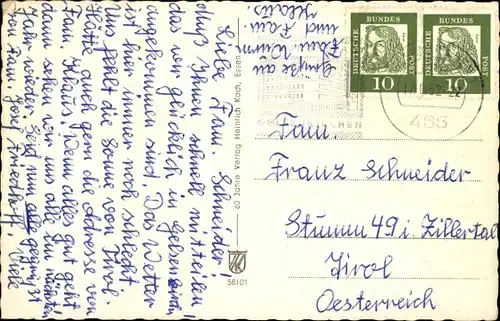 Liebe Fam. Schneider!
Muß Ihnen schnell mitteilen
das wir glücklich in Gelsenkirchen
angekommen sind. Das Wetter
ist hier immer noch schlecht.
Uns fehlt die Sonne von Tirol.
Hätte auch gern die Adresse von
Fam. Klaus. Wenn alles gut geht
dann sehen wir uns alle im nächsten
Jahr wieder. Seid nun alle gegrüßt
von Fam. Josef
Viele
Grüße an
Fam. Wurm
und Fam.
Klaus.
60 Jahre Verlag Heinrich Koch, Essen
58101
DEUTSCHE BUNDESPOST
10
DEUTSCHE BUNDESPOST
10
465
Fam.
Franz Schneider
Stumm 49 i. Zillertal
Tirol
Oesterreich